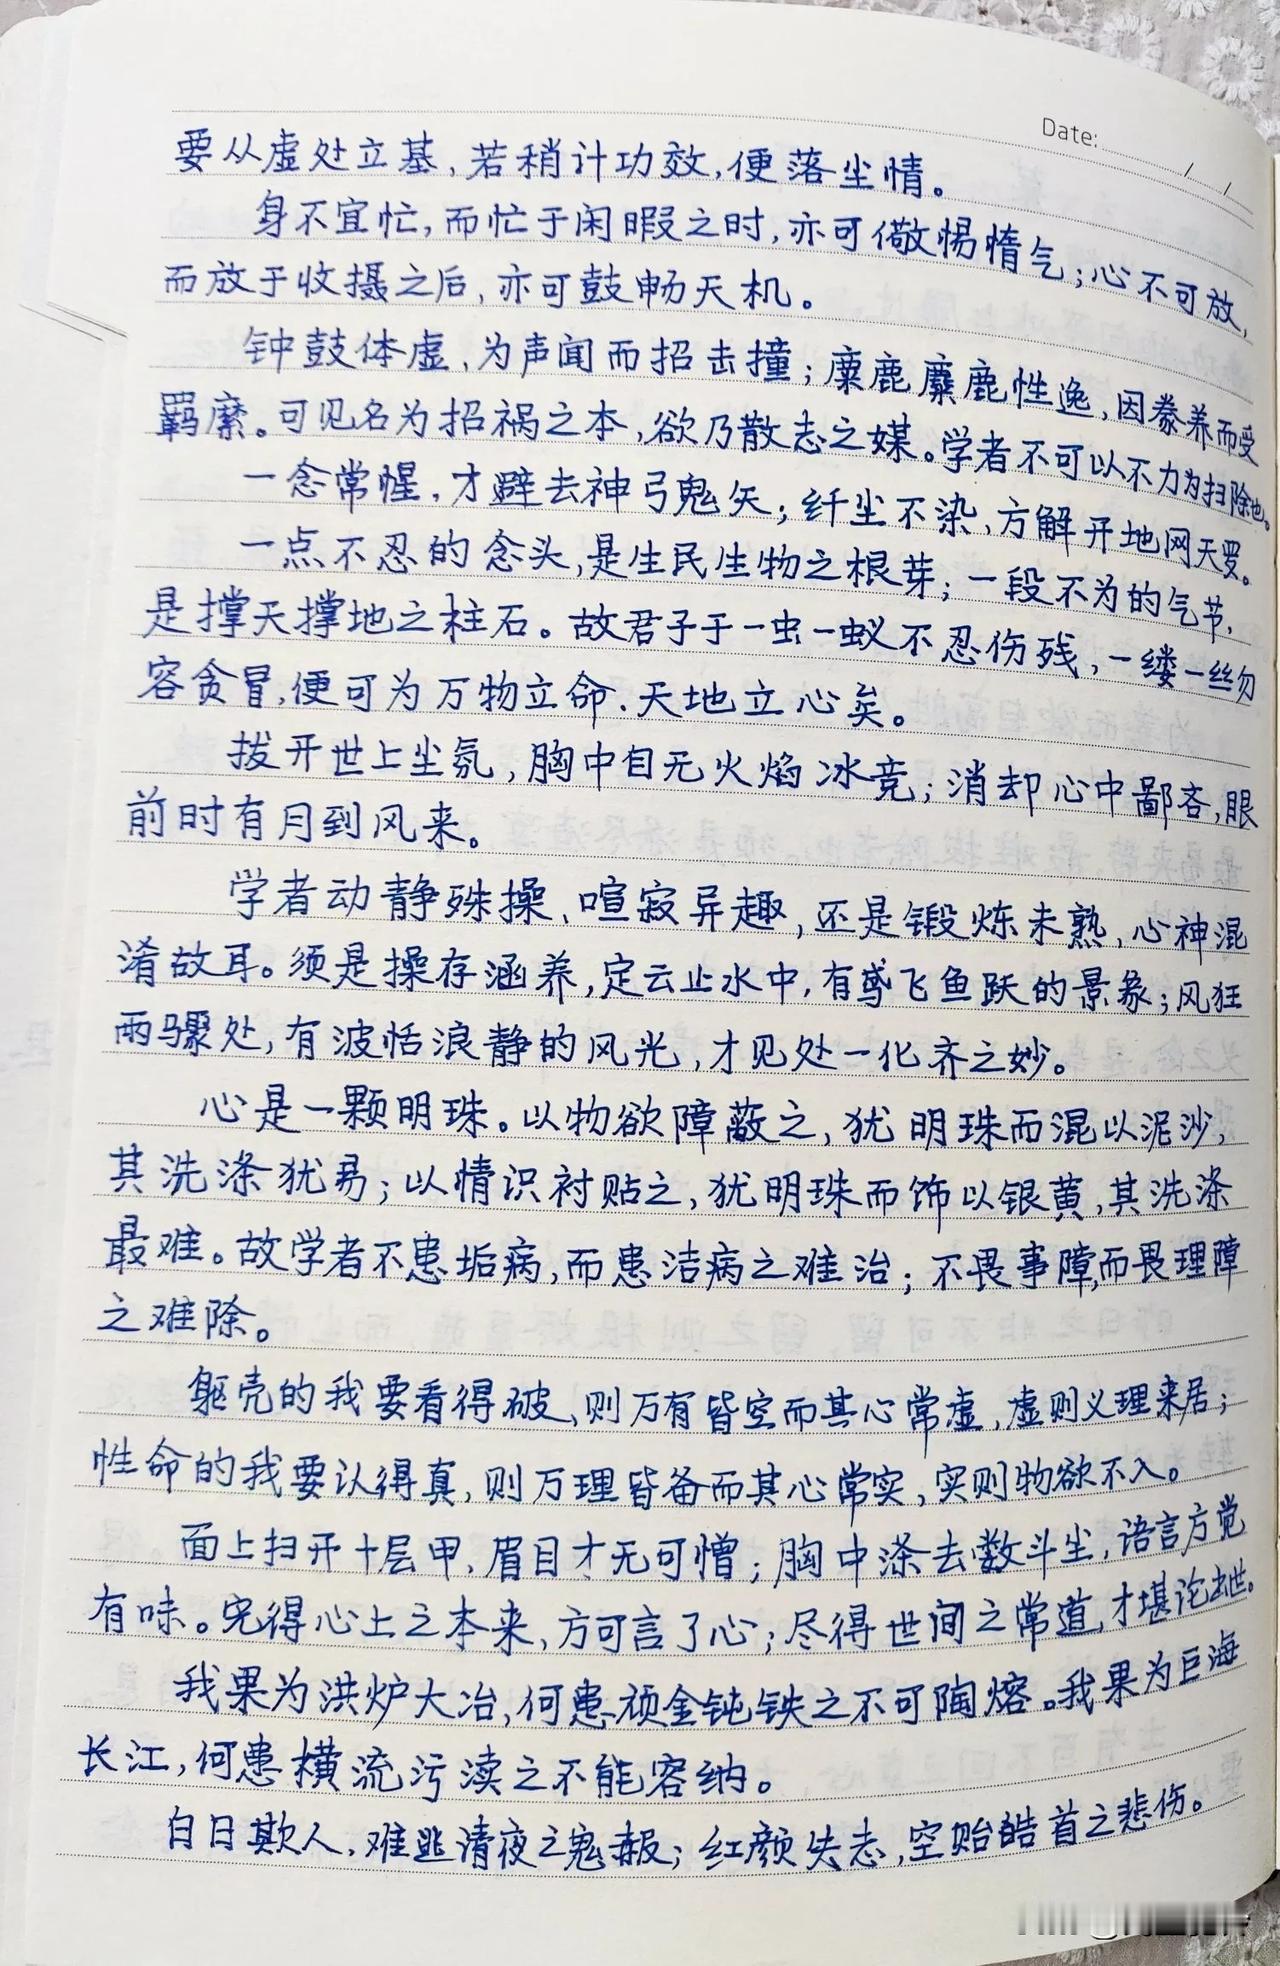 Date: / /
要从虚处立基,若稍计功效,便落尘情。
身不宜忙,而忙于闲暇之时,亦可儆惕惰气;心不可放,
而放于收摄之后,亦可鼓畅天机。
钟鼓体虚,为声闻而招击撞;麋鹿麋鹿性逸,因豢养而受
羁縻。可见名为招祸之本,欲乃散志之媒。学者不可以不力为扫除也。
一念常惺,才避去神弓鬼矢;纤尘不染,方解开地网天罗。
一点不忍的念头,是生民生物之根芽;一段不为的气节,
是撑天撑地之柱石。故君子于一虫一蚁不忍伤残,一缕一丝勿
容贪冒,便可为万物立命、天地立心矣。
拨开世上尘氛,胸中自无火焰冰竞;消却心中鄙吝,眼
前时有月到风来。
学者动静殊操、喧寂异趣,还是锻炼未熟,心神混
淆故耳。须是操存涵养,定云止水中,有鸢飞鱼跃的景象;风狂
雨骤处,有波恬浪静的风光,才见处一化齐之妙。
心是一颗明珠。以物欲障蔽之,犹明珠而混以泥沙,
其洗涤犹易;以情识衬贴之,犹明珠而饰以银黄,其洗涤
最难。故学者不患垢病,而患洁病之难治;不畏事障,而畏理障
之难除。
躯壳的我要看得破,则万有皆空而其心常虚,虚则义理来居;
性命的我要认得真,则万理皆备而其心常实,实则物欲不入。
面上扫开十层甲,眉目才无可憎;胸中涤去数斗尘,语言方觉
有味。完得心上之本来,方可言了心;尽得世间之常道,才堪论出世。
我果为洪炉大冶,何患顽金钝铁之不可陶熔。我果为巨海
长江,何患横流污渎之不能容纳。
白日欺人,难逃清夜之鬼报;红颜失志,空贻皓首之悲伤。